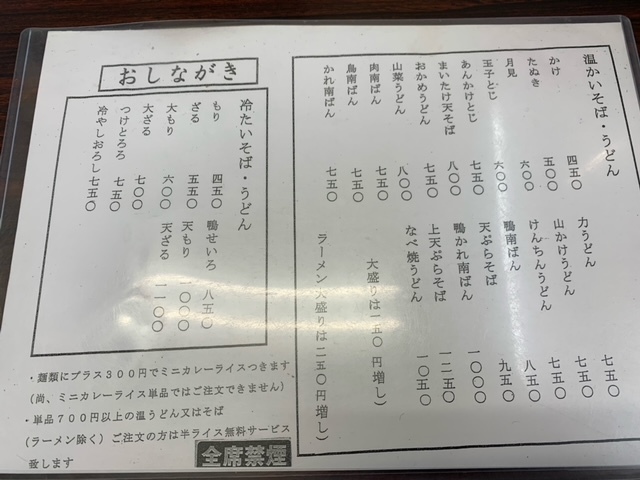 おしながき
温かいそば・うどん
かけ 四五〇
たぬき 五〇〇
月見 六〇〇
玉子とじ 六〇〇
あんかけとじ 七五〇
まいたけ天そば 八〇〇
おかめうどん 七五〇
山菜うどん 八〇〇
肉南ばん 七五〇
鳥南ばん 七五〇
かれ南ばん 七五〇
力うどん 七五〇
山かけうどん 七五〇
けんちんうどん 七五〇
鴨南ばん 八五〇
天ぷらそば 九五〇
鴨かれ南ばん 一〇〇〇
上天ぷらそば 一二五〇
なべ焼うどん 一〇五〇
大盛りは一五〇円増し)
ラーメン大盛りは二五〇円増し)
冷たいそば・うどん
もり 四五〇
ざる 五五〇
大もり 六〇〇
大ざる 七〇〇
つけとろろ 七五〇
冷やしおろし 七五〇
鴨せいろ 八五〇
天もり 一〇〇〇
天ざる 一一〇〇
・麺類にプラス３００円でミニカレーライスつきます
(尚、ミニカレーライス単品ではご注文できません)
・単品７００円以上の温うどん又はそば
(ラーメン除く)ご注文の方は半ライス無料サービス
致します
全席禁煙